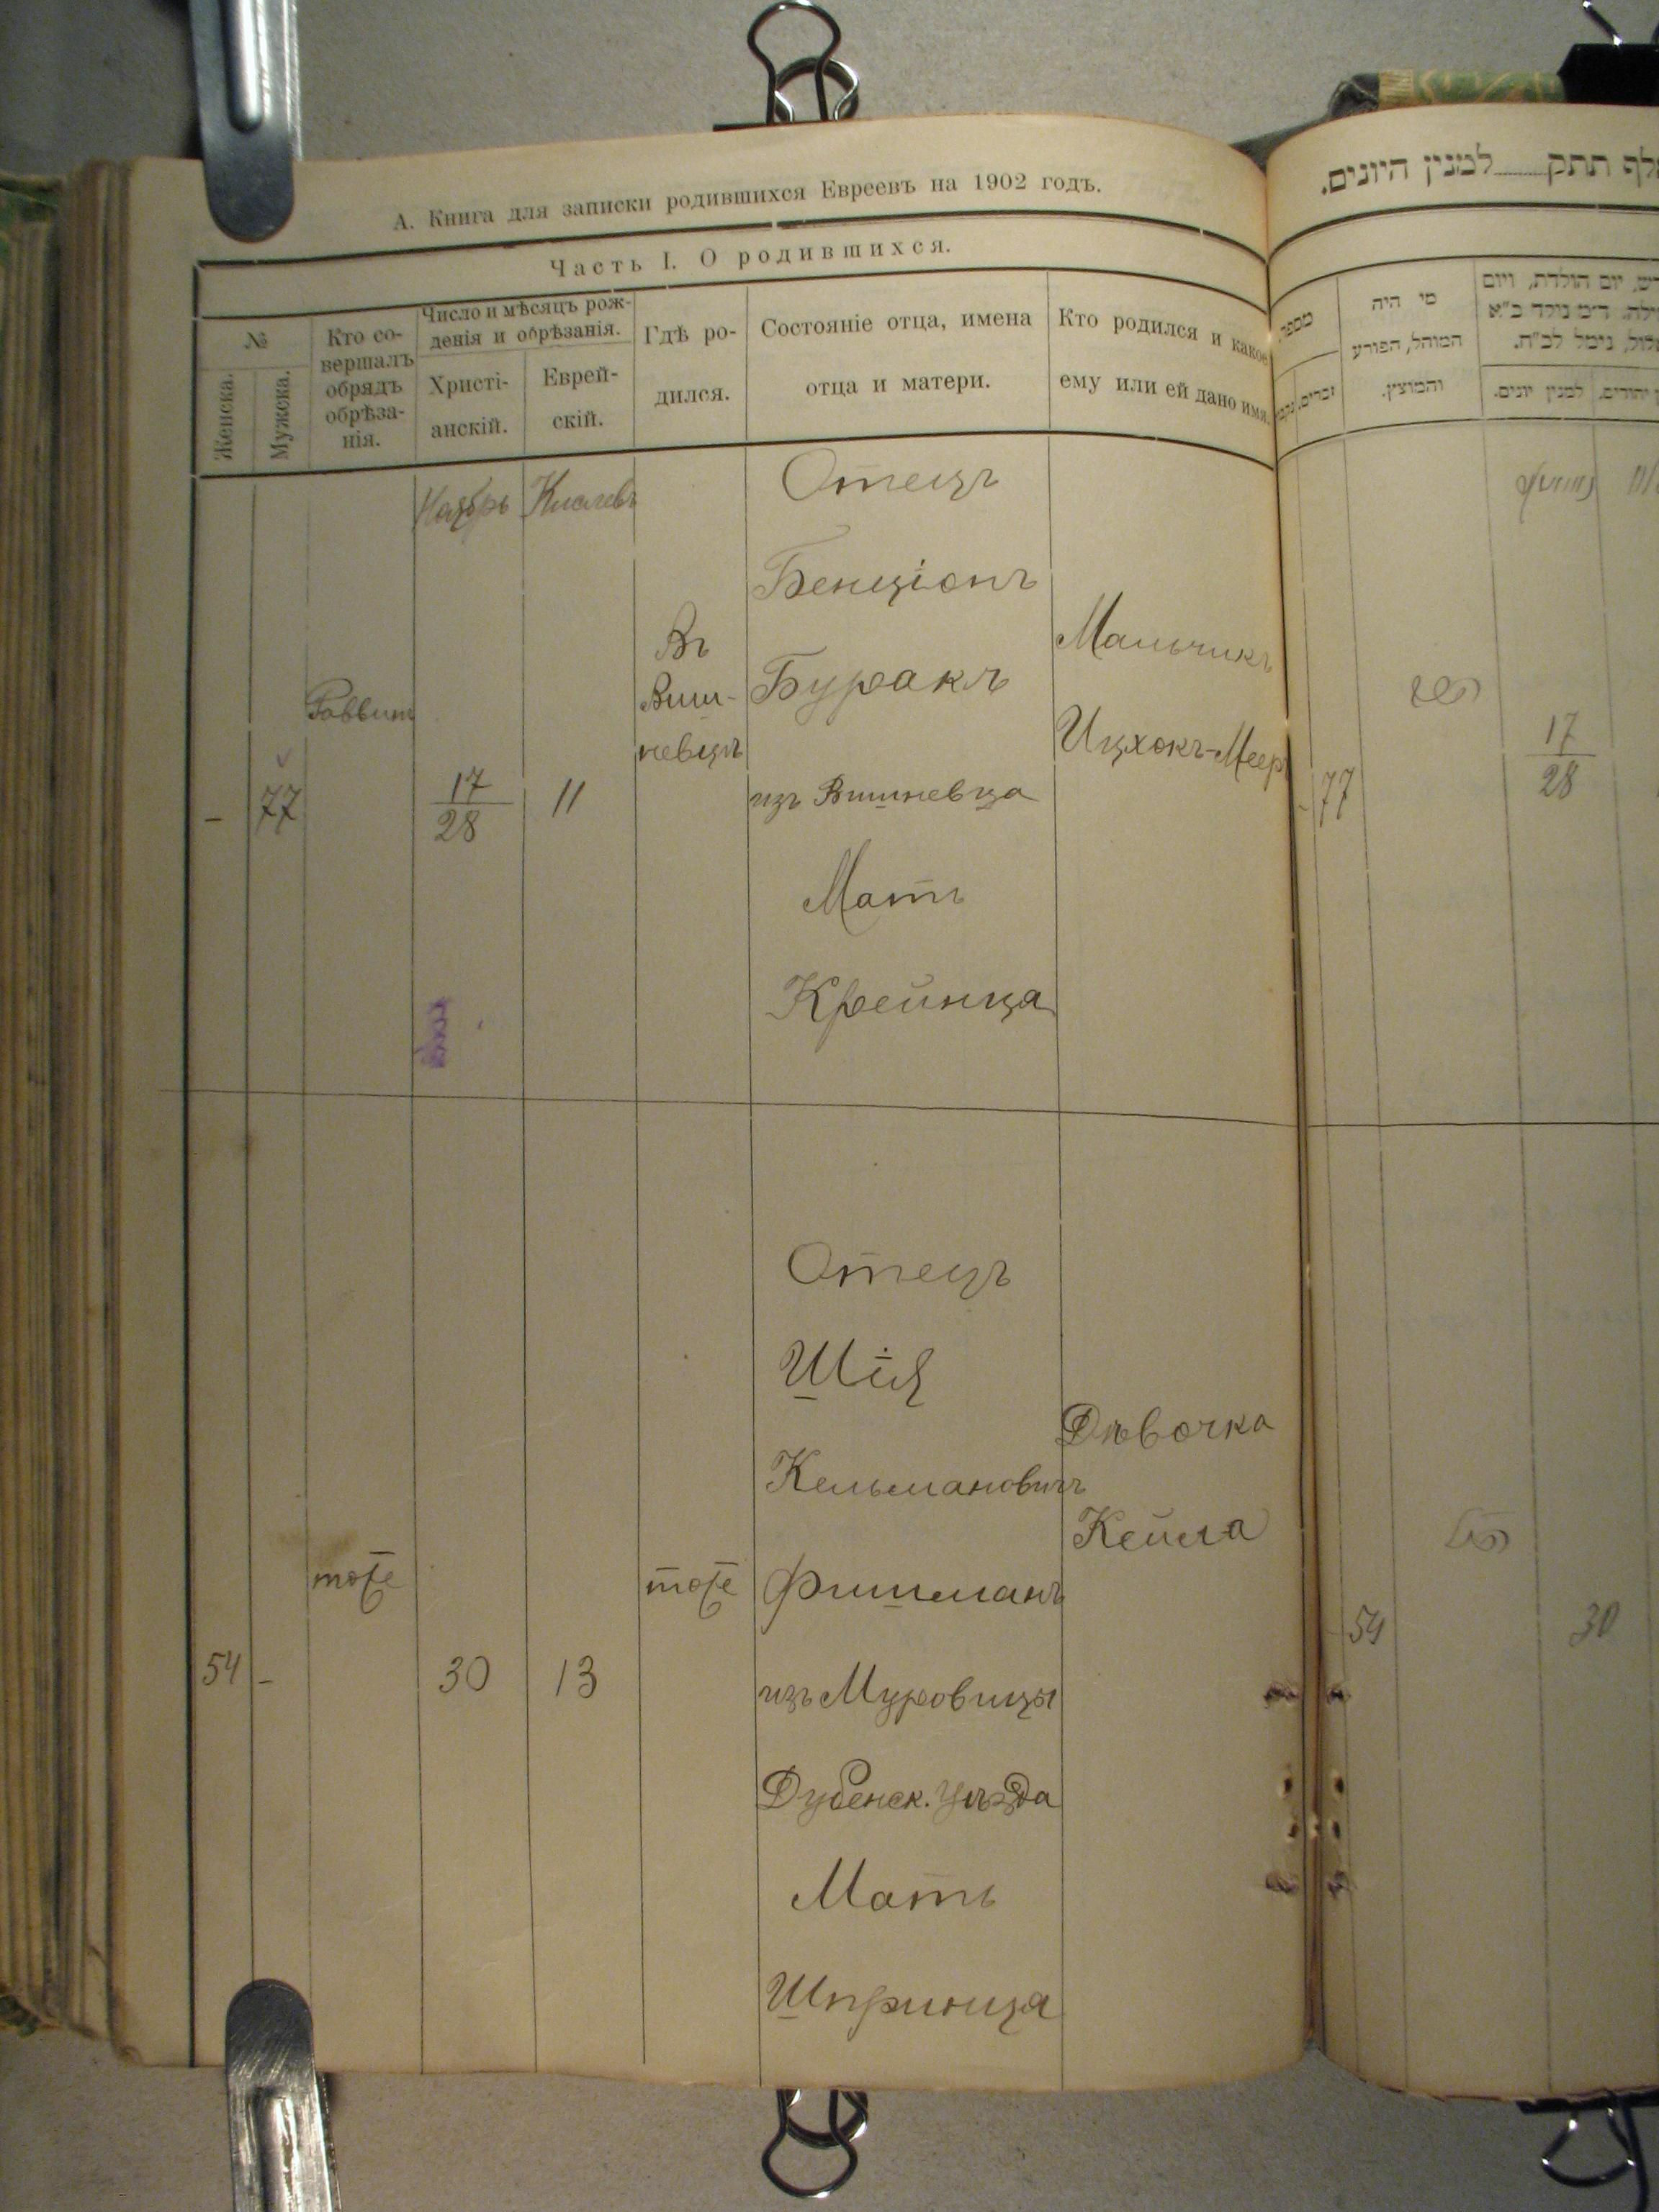 А. Книга для записки родившихся Евреевъ на 1902 годъ.
Часть I. О родившихся.
№
Женска.
Мужска.
Кто со-
вершалъ
обрядъ
обрѣза-
нія.
Число и мѣсяцъ рож-
денія и обрѣзанія.
Христі-
анскій.
Еврей-
скій.
Гдѣ ро-
дился.
Состояніе отца, имена
отца и матери.
Кто родился и какое
ему или ей дано имя.
-
77
Раввинъ
Ноябрь
17
28
Кислевъ
11
Въ
Виш-
невцѣ
Отецъ
Бенціонъ
Буракъ
изъ Вишневца
Мать
Крейнца
Мальчикъ
Ицхокъ-Меер
54
-
тоже
30
13
тоже
Отецъ
Шія
Кельмановичъ
Фишманъ
изъ Муровицы
Дубенск. Уѣзда
Мать
Шпринца
Дѣвочка
Кейла
אלף תתק למנין היונים.
מספר
זכרים.
מי היה
המוהל, הפורע
והמוצץ.
יום הולדת, ויום
נולד כ״א
לכ״ח.
למנין יונים.
77
17
28
54
30